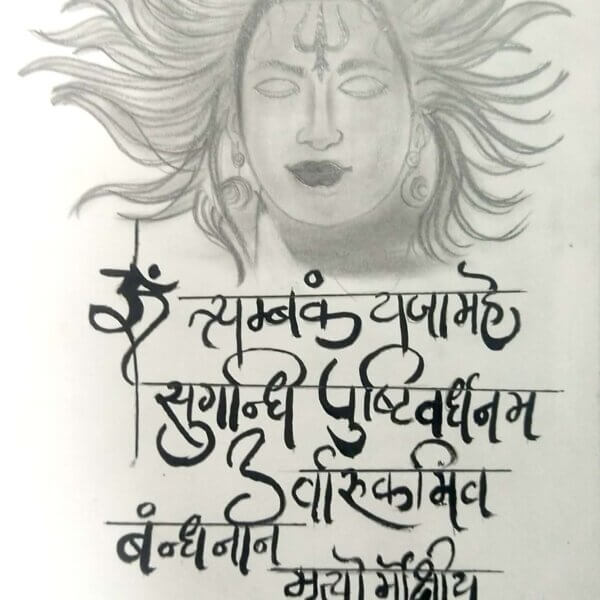 ॐ त्र्यम्बकं यजामहे
सुगन्धि पुष्टिवर्धनम
उर्वारुकमिव
बंन्धनान
मृत्योर्मोक्षीय